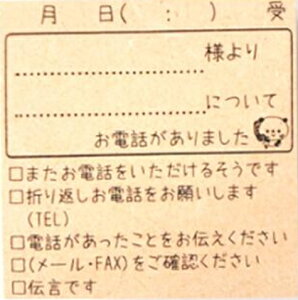 月 日( : ) 受
様より
について
お電話がありました
□またお電話をいただけるそうです
□折り返しお電話をお願いします
(TEL)
□電話があったことをお伝えください
□(メール・FAX)をご確認ください
□伝言です